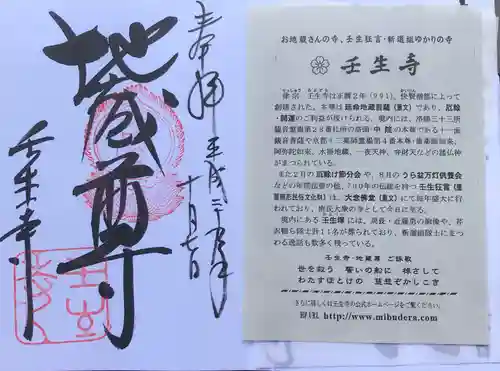 奉拝
平成二十九年
十月七日
地蔵尊
壬生寺
お地蔵さんの寺、壬生狂言・新選組ゆかりの寺
壬生寺
律宗 壬生寺は正暦2年（991）、快賢僧都によって
創建された。本尊は延命地蔵菩薩（重文）であり、厄除・
開運のご利益が授けられる。境内には、洛陽三十三所
観音霊場第28番札所の塔頭・中院の本尊である十一面
まつられている。
また2月の厄除け節分会や、8月のうら盆万灯供養会
などの年間法要の他、700年の伝統を持つ壬生狂言（重
要無形民俗文化財）は、大念佛堂（重文）にて毎年盛大に行
われており、庶民大衆の寺として今日に至る。
境内にある壬生塚には、局長・近藤勇の胸像や、芹
沢鴨ら隊士計11名が葬られており、新選組隊士にまつ
わる逸話も数多く残っている。
壬生寺・地蔵尊 ご詠歌
世を救う 誓いの船に 棹さして
さらに詳しくは壬生寺の公式ホームページをご覧ください。
http://www.mibudera.com